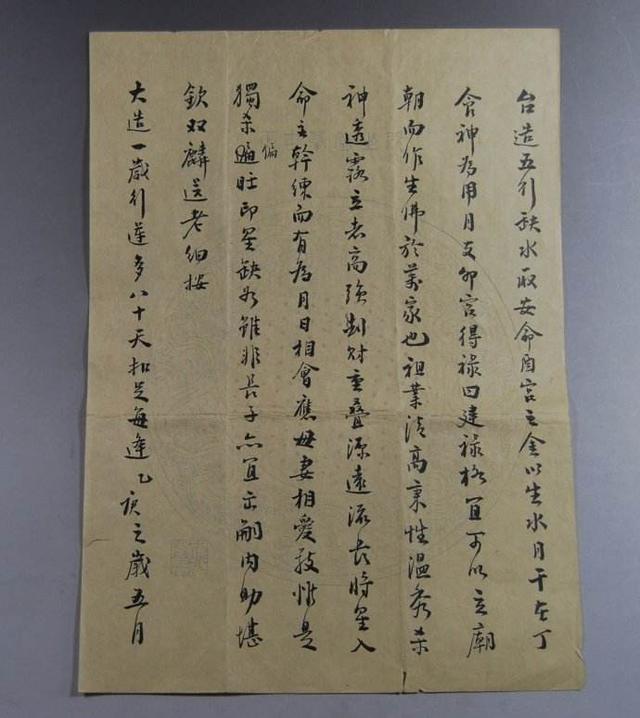 台造五行缺水取安命酉宮主金以生水月干在丁
食神為用月支卯宮得祿曰建祿格宜可以立廟
朝而作生佛於萬家也祖業清高秉性溫秀杀
神透露立志高強劃財重叠源遠流長時星入
命主幹練而有為月日相會應毋妻相愛敬惟是
獨杀偏旺印星缺如雖非長子亦宜立嗣內助堪
欽双麟送老細按
大造一歲行運多八十天扣足每逢乙庚之歲五月